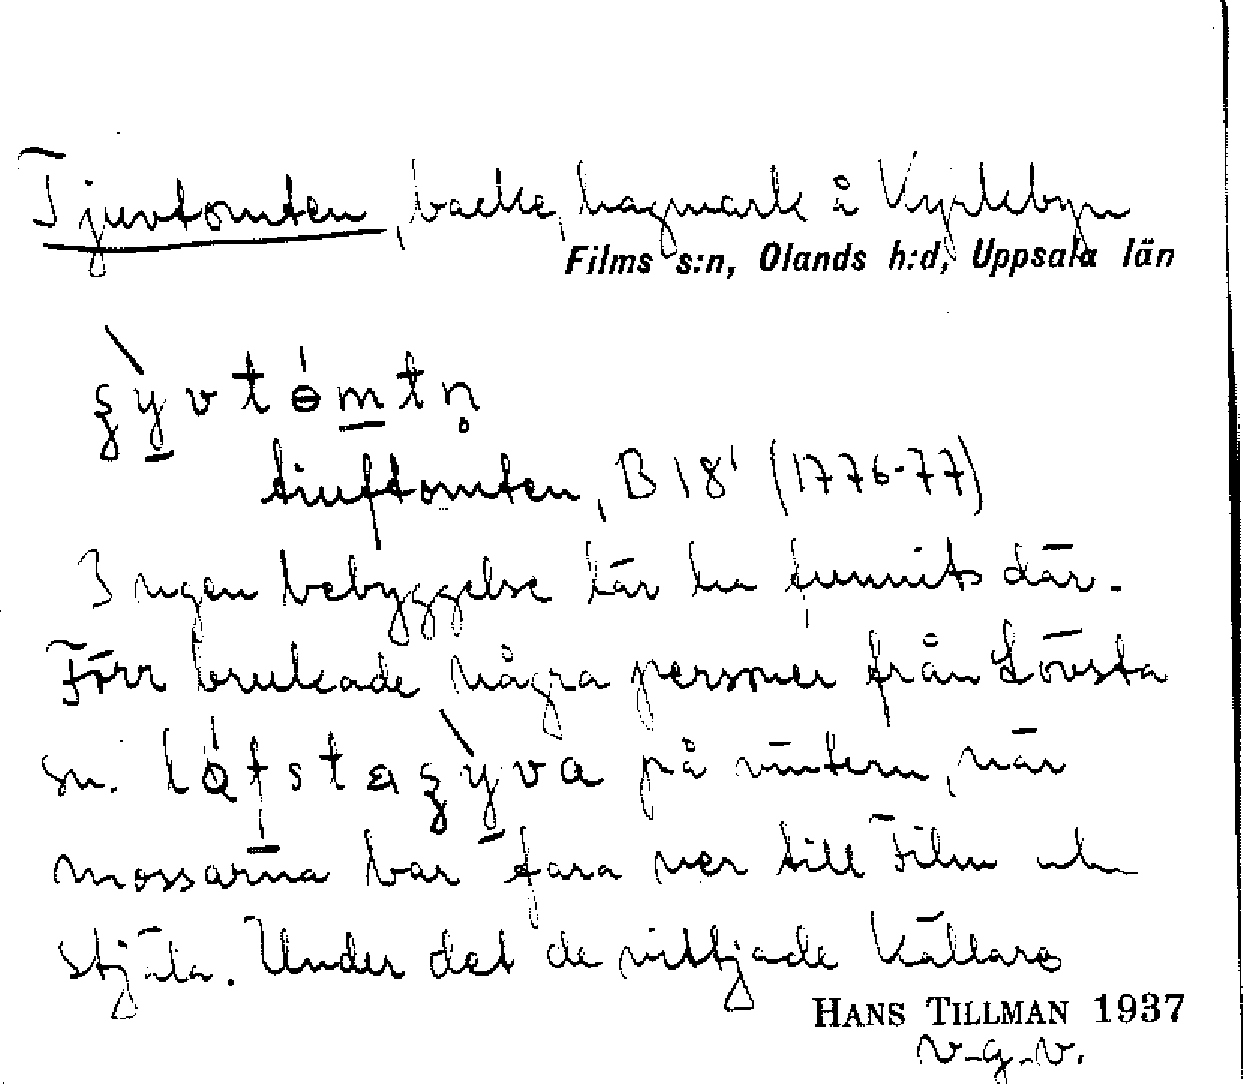 Tjuvtomten, backe, hagmark å Vyrkebyn
Films s:n, Olands h:d, Uppsala län
tiuftomten, B 18¹ (1776-77)
Ingen bebyggelse lär ha funnits där.
Förr brukade några personer från Lövsta
sn. på vintern, när
mossarna bar fara ner till Film och
stjäla. Under det de vittjade källare
HANS TILLMAN 1937
v.g.v.